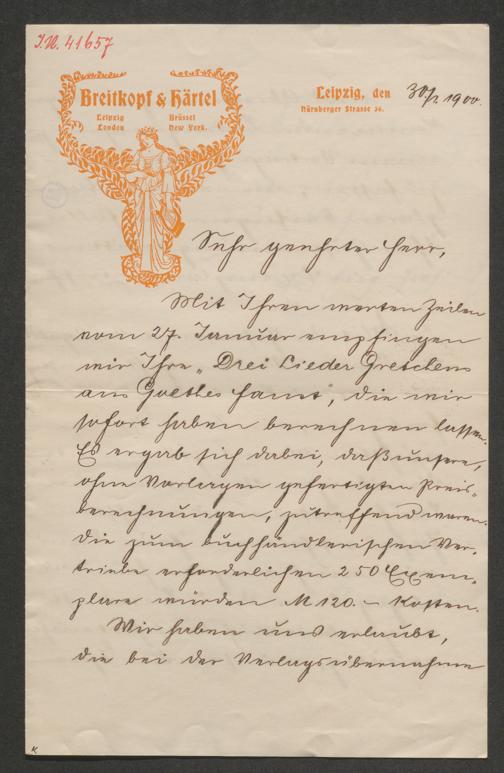 J.N. 41657
Breitkopf & Härtel
Leipzig Brüssel
London New York.
Leipzig, den 30/1 1900.
Nürnberger Strasse 36.
Sehr geehrter Herr,
Mit Ihren werten Zeilen
vom 27. Januar empfingen
wir Ihre „Drei Lieder Gretchens
aus Goethes Faust", die wir
sofort haben berechnen lassen.
Es ergab sich dabei, daß unsere,
ohne Vorlagen gefertigten Preis-
berechnungen, zutreffend waren.
Die zum buchhändlerischen Ver-
triebe erforderlichen 250 Exem-
plare würden M 120.– kosten.
Wir haben uns erlaubt,
die bei der Verlagsübernahme